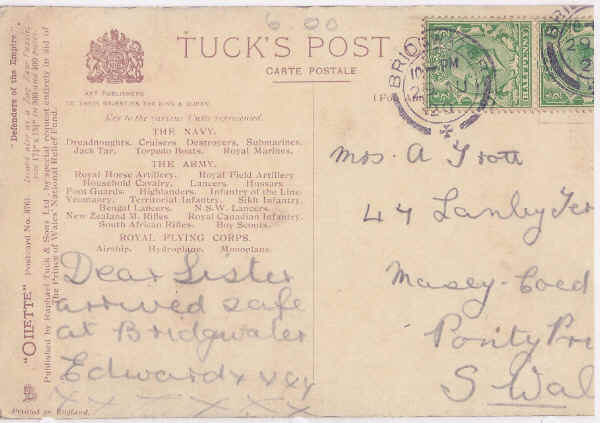 6.00
TUCK'S POST
CARTE POSTALE
ART PUBLISHERS
TO THEIR MAJESTIES THE KING & QUEEN.
Key to the various Units represented.
THE NAVY.
Dreadnoughts. Cruisers. Destroyers. Submarines.
Jack Tar. Torpedo Boats. Royal Marines.
THE ARMY.
Royal Horse Artillery. Royal Field Artillery
Household Cavalry. Lancers. Hussars.
Foot Guards. Highlanders. Infantry of the Line
Yeomanry. Territorial Infantry. Sikh Infantry.
Bengal Lancers. N.S.W. Lancers.
New Zealand M. Rifles. Royal Canadian Infantry.
South African Rifles. Boy Scouts.
ROYAL FLYING CORPS.
Airship. Hydroplane. Monoplane.
Dear Sister
arrived safe
at Bridgwater
Edward
x x x x x x
"Defenders of the Empire."
"OILETTE" Postcard No.
Published by Raphael Tuck & Sons Ltd. by special request entirely in aid of
The Prince of Wales' National Relief Fund.
Printed in England.
HALFPENNY
(For
Mrs. A Trott
47 Lanby Ter
Masey-Coed
Ponty Pri
S Wal